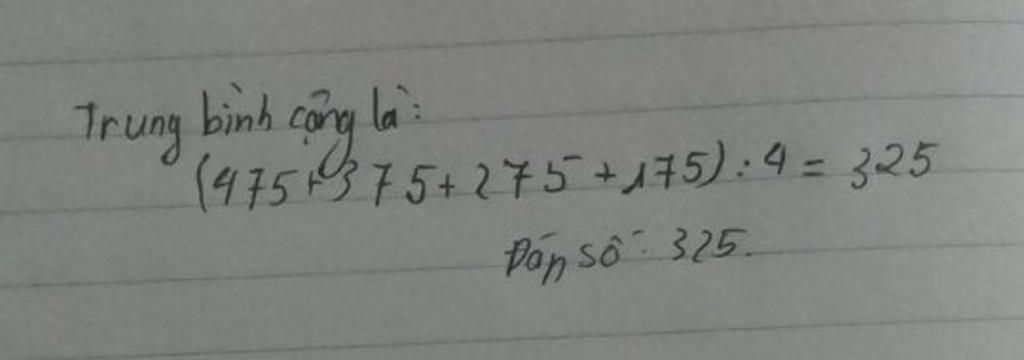 Trung bình cộng là:
(475+375+275+175):4=325
Đáp số: 325.